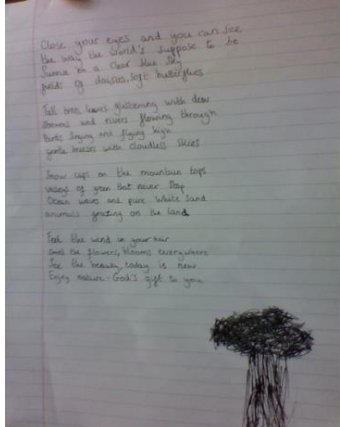 Close your eyes and you can see
the way the world's suppose to be
Sunrise in a clear blue sky
fields of daisies, soft butterflies
Tall trees, leaves glistening with dew
streams and rivers flowing through
Birds singing and flying high
gentle breezes with cloudless skies
Snow caps on the mountain tops
valleys of green that never stop
Ocean waves and pure white sand
animals grazing on the land
Feel the wind in your hair
smell the flowers, blooms everywhere
See the beauty, today is new
Enjoy nature - God's gift to you